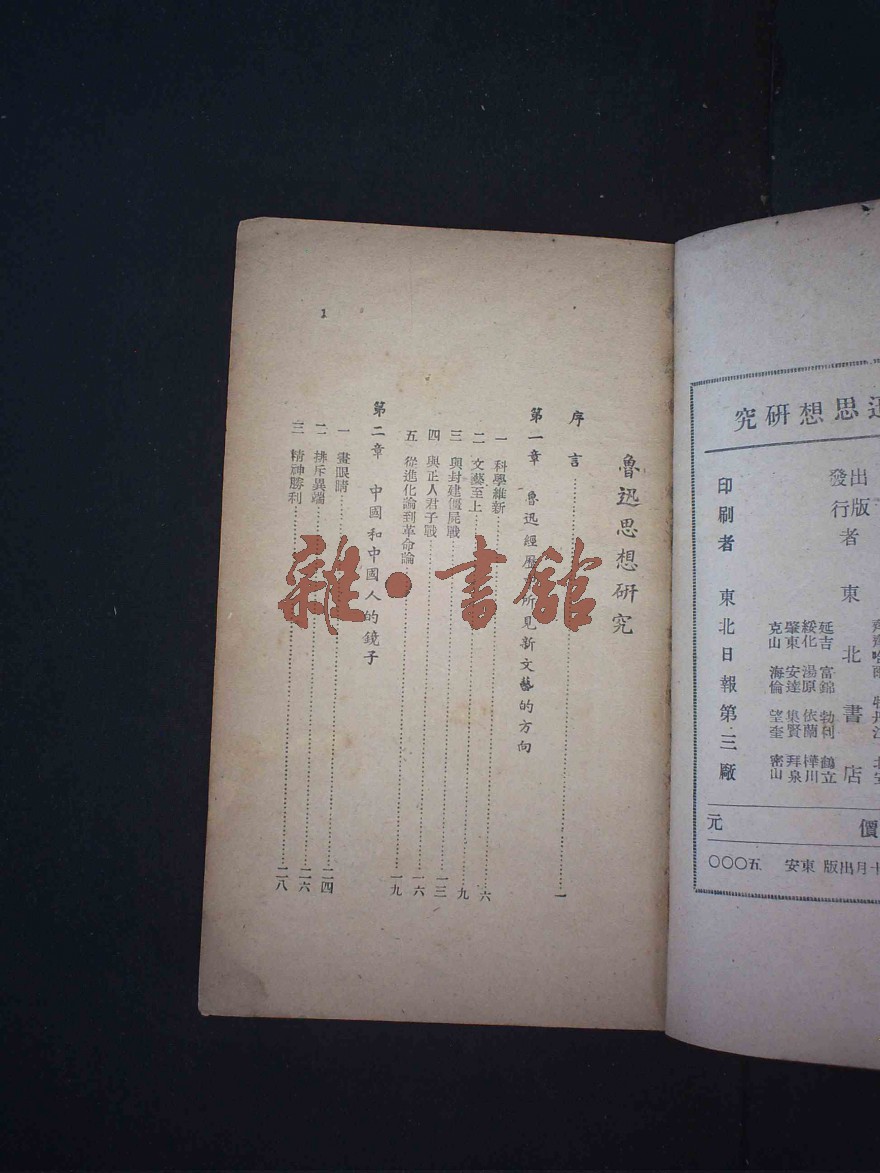 思想研究
出版
發行
者 東北書店
延吉 富錦 勃利 鶴立
綏化 湯原 依蘭 樺川
肇東 安達 集賢 拜泉
克山 海倫 望奎 密山
印刷者 東北日報第三廠
價 元
月出版 東安 五〇〇〇
魯迅思想研究
序言……一
第一章 魯迅經歷所見新文藝的方向
一 科學維新……六
二 文藝至上……九
三 與封建僵屍戰……一三
四 與正人君子戰……一六
五 從進化論到革命論……一九
第二章 中國和中國人的鏡子
一 畫眼睛……二四
二 排斥異端……二六
三 精神勝利……二八
1
雜·書館